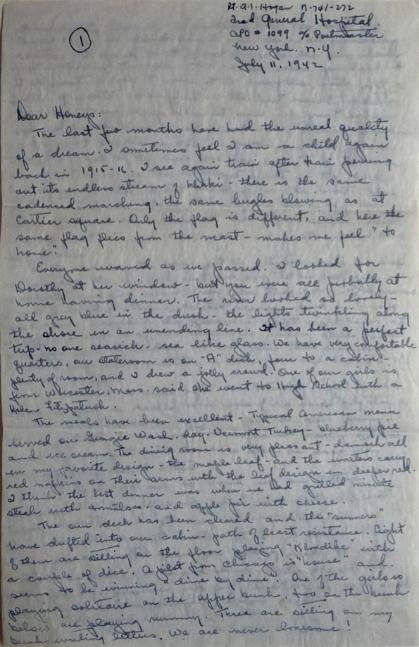 ①
Lt. A.I. Hogan N-741-272
2nd General Hospital
APO # 1099 c/o Postmaster
New York. N.Y.
July 11, 1942
Dear Honeys:
The last few months have had the unreal quality
of a dream. I sometimes feel I am a child again
back in 1915-16. I see again train after train pouring
out its endless stream of khaki - there is the same
cadenced marching, the same bugles blowing as at
Cartier square. Only the flag is different, and here the
same flag flies from the mast - makes me feel "to
home".
Everyone waved as we passed. I looked for
Dorothy at her window - but you were all probably at
home having dinner. The river looked so lovely -
all grey blue in the dusk - the lights twinkling along
the shore in an unending line. It has been a perfect
trip - no one seasick - sea like glass. We have very comfortable
quarters, our stateroom is on "A" deck, four to a cabin -
plenty of room, and I drew a jolly crowd. One of our girls is
from Worcester, Mass. said she went to High School with a
Fitzpatrick.
The meals have been excellent - Typical American menu
served on Georgie Wash. day - Vermont Turkey - blueberry pie
and ice cream. The dining room is very pleasant - damask all
in my favorite design - the maple leaf - and the waiters carry
red napkins on their arms with the leaf design in deeper red.
I think the best dinner was when we had grilled minute
steak with tomatoes - and apple pie with cheese.
The sun deck has been cleared and the "sunners"
have drifted into our cabin - path of least resistance. Eight
of them are sitting on the floor playing "Klondike" with
a couple of dice. A pilot from Chicago is and
seems to be winning "dime by dime". One of the girls is
playing solitaire on the upper bunk, two on the bunk
below are playing rummy. Three are sitting on my
bunk writing letters. We are never lonesome!